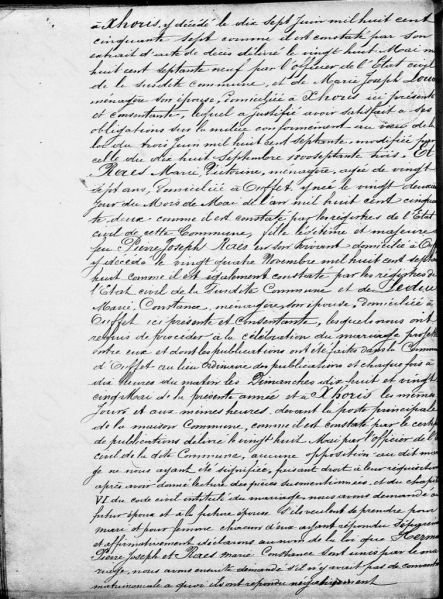 à Xhoris, y décédé le dix sept Juin mil huit cent
cinquante sept comme il est constaté par son
extrait d'acte de décès délivré le vingt huit Mai mil
huit cent septante neuf par l'officier de l'Etat civil
de la susdite commune, et de Marie Joseph
menagère son épouse, domiciliée à Xhoris ici présente
et consentante, lequel a justifié avoir satisfait à ses
obligations sur la milice conformement au vœu de la
loi du trois Juin mil huit cent septante, modifiée par
celle du dix huit Septembre 1800 septante trois. Et
Raes Marie Victoire, menagère, agée de vingt
sept ans, domiciliée à Ouffet, y née le vingt deux
Jour du Mois de Mai de l'an mil huit cent cinquante
deux comme il est constaté par les régistres de l'Etat
civil de cette Commune, fille légitime et majeure de
feu Pierre Joseph Raes en son vivant domicilié à Ouffet
y décédé le vingt quatre Novembre mil huit cent septante
huit comme il est également constaté par les régistres de
l'Etat civil de la susdite Commune et de
Marie, Constance, menagère, son épouse, domiciliée à
Ouffet ici présente et consentante, lesquels nous ont
requis de proceder à la célébration du mariage projeté
entre eux et dont les publications ont été faites dans la Commune
d'Ouffet au lieu ordinaire des publications et chaque fois à
dix heures du matin les Dimanches dix huit et vingt
cinq Mai de la présente année et à Xhoris les mêmes
Jours et aux mêmes heures, devant la porte principale
de la maison Commune, comme il est constaté par le certificat
de publications délivré le vingt huit Mai par l'officier de l'Etat
civil de la dite Commune, aucune opposition au dit mariage
ge ne nous ayant été signifiée, faisant droit à leur réquisition
après avoir donné lecture des pièces susmentionnées, et du chapitre
VI du code civil intitulé du mariage, nous avons demandé au
futur époux et à la future épouse s'ils veulent se prendre pour
mari et pour femme chacun d'eux ayant répondu séparement
et affirmativement déclarons au nom de la loi que
Pierre Joseph et Raes Marie Constance sont unis par le ma-
riage, nous avons ensuite demandé s'il n'y avait pas de convention
matrimoniale à quoi ils ont répondu négativement